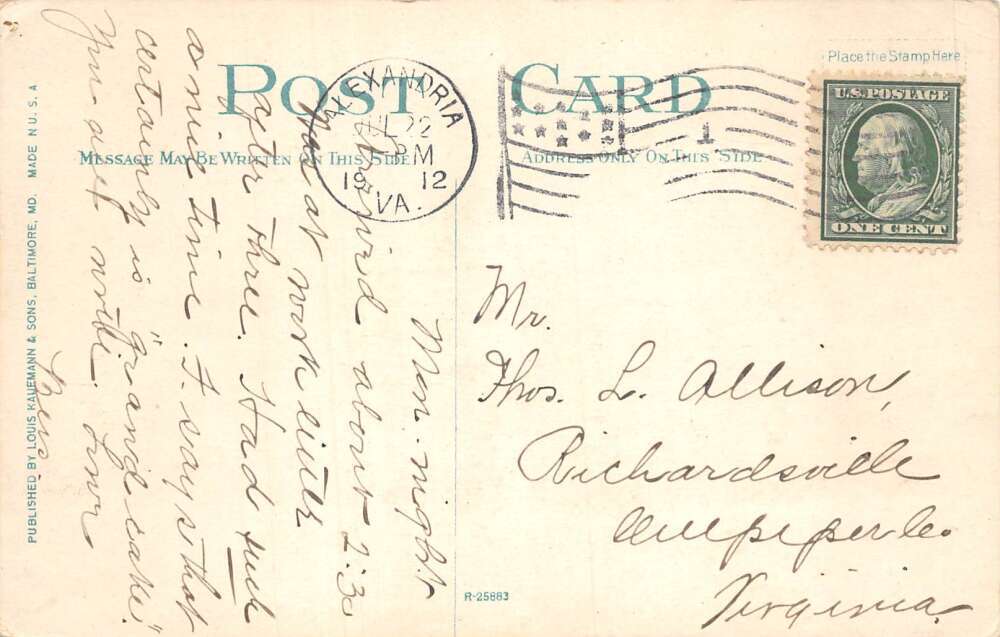 POST CARD
Place the Stamp Here
MESSAGE MAY BE WRITTEN ON THIS SIDE
ADDRESS ONLY ON THIS SIDE
ALEXANDRIA
JUL 22
PM
19 12
VA.
1
U.S. POSTAGE
ONE CENT
Mon. night
Arrived about 2:30
at work until
after three. Had such
a nice time. F. says "that
certainly is grand cake."
You all write. Love
Mr.
Thos. L. Allison,
Richardsville
Culpeper Co.
Virginia
R-25883
PUBLISHED BY LOUIS KAUFMANN & SONS, BALTIMORE, MD. MADE IN U. S. A